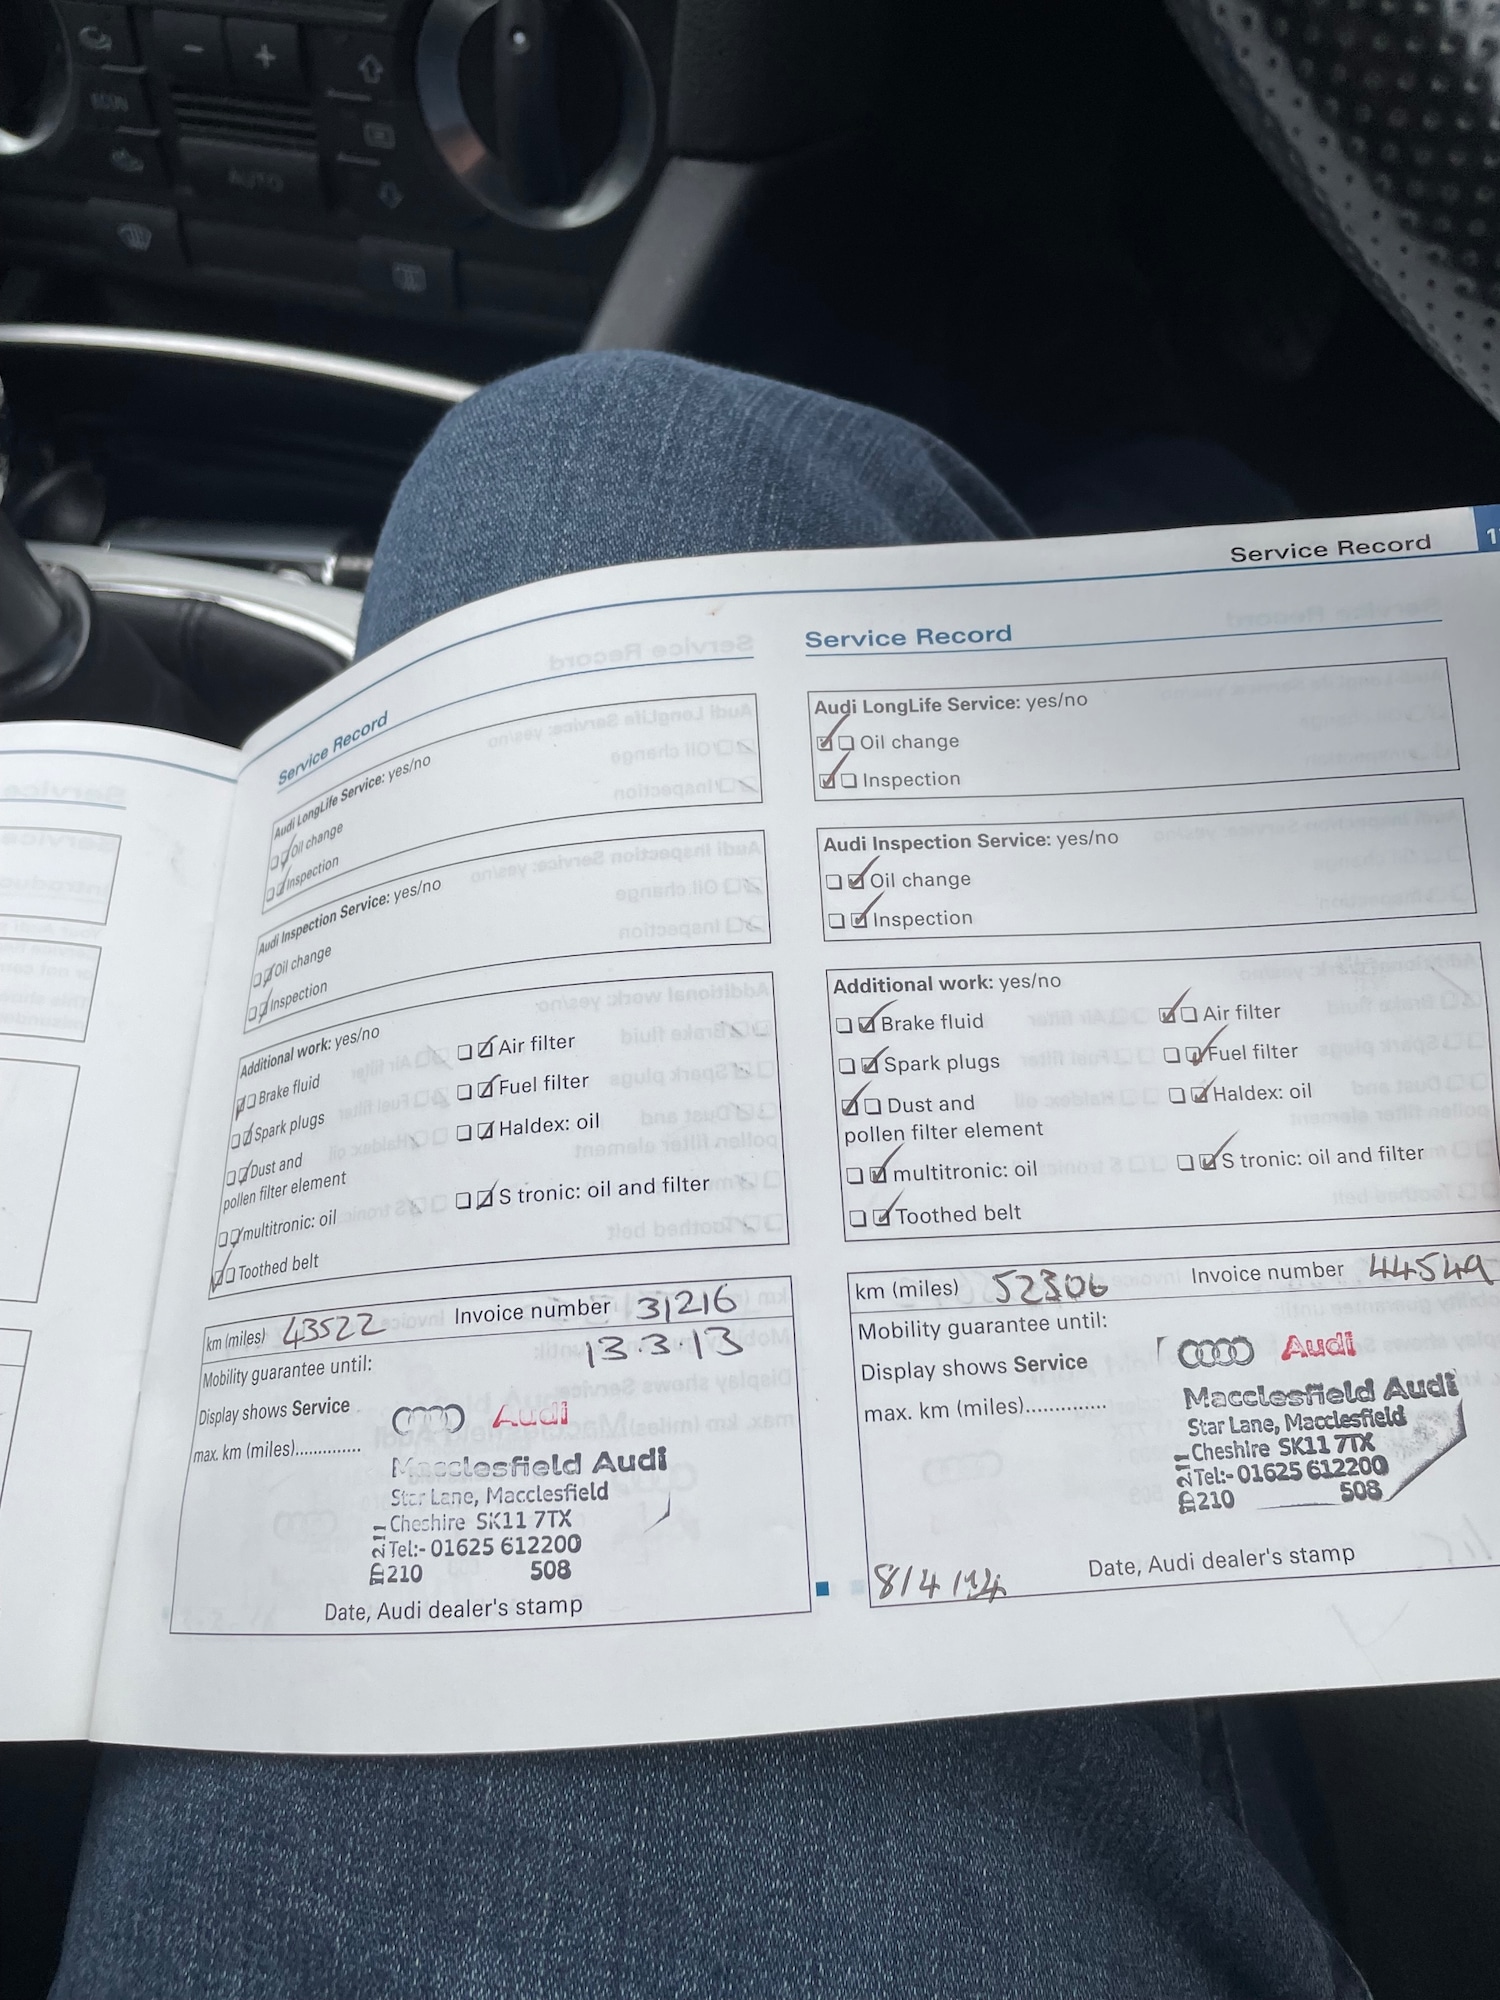 AUTO
ECON
Service Record
11
Service Record
Audi LongLife Service: yes/no
Oil change
Inspection
Audi Inspection Service: yes/no
Oil change
Inspection
Additional work: yes/no
Brake fluid
Air filter
Spark plugs
Fuel filter
Dust and
pollen filter element
Haldex: oil
multitronic: oil
S tronic: oil and filter
Toothed belt
km (miles) 43522 Invoice number 31216
Mobility guarantee until: 13.3.13
Display shows Service
max. km (miles).............
Audi
Macclesfield Audi
Star Lane, Macclesfield
Cheshire SK11 7TX
Tel:- 01625 612200
210 508
Date, Audi dealer's stamp
Service Record
Audi LongLife Service: yes/no
Oil change
Inspection
Audi Inspection Service: yes/no
Oil change
Inspection
Additional work: yes/no
Brake fluid
Air filter
Spark plugs
Fuel filter
Dust and
pollen filter element
Haldex: oil
multitronic: oil
S tronic: oil and filter
Toothed belt
km (miles) 52306 Invoice number 44549
Mobility guarantee until:
Display shows Service
max. km (miles)..............
Audi
Macclesfield Audi
Star Lane, Macclesfield
Cheshire SK11 7TX
Tel:- 01625 612200
210 508
8/4/14
Date, Audi dealer's stamp